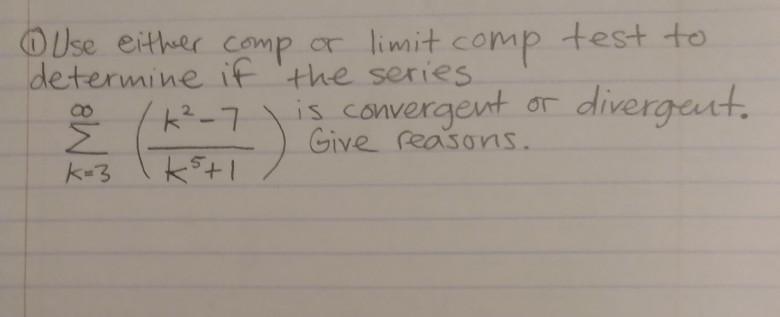 ① Use either comp or limit comp test to
determine if the series
∞
Σ
k=3
(k²-7 / k⁵+1)
is convergent or divergent.
Give reasons.